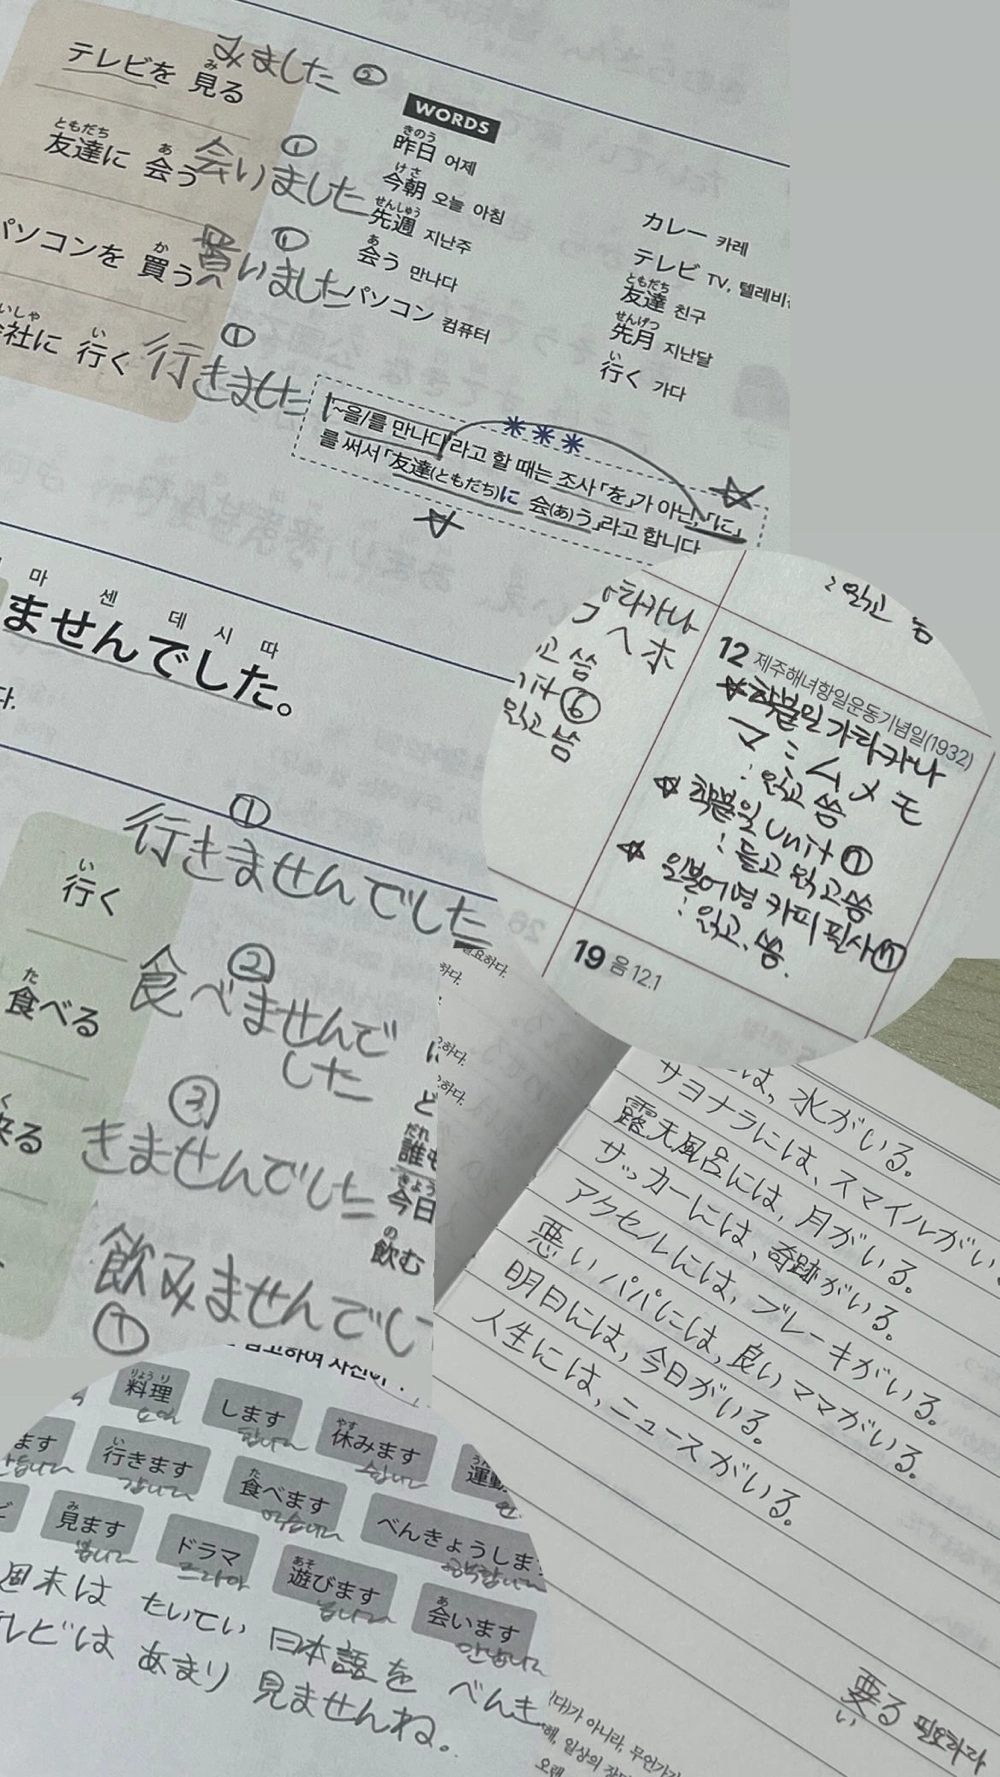 テレビを 見る みました ②
み
WORDS
ともだち
友達に 会う 会いました ①
あ
パソコンを 買う 買いました ①
か
いしゃ
会社に 行く 行きました ①
い
きのう
昨日 어제
けさ
今朝 오늘 아침
せんしゅう
先週 지난주
あ
会う 만나다
パソコン 컴퓨터
カレー 카레
テレビ TV, 텔레비
ともだち
友達 친구
せんげつ
先月 지난달
い
行く 가다
***
「~을/를 만나다」라고 할 때는 조사 「を」가 아닌, 「に」
를 써서 「友達(ともだち)に 会(あ)う」라고 합니다
마 센 데 시 따
ませんでした。
다.
い
行く 行きませんでした ①
た
食べる 食べませんで ②
した
来る きませんでした ③
飲みませんでし ①
필요하다.
하다.
하다.
하다.
ど
だれ
誰も
きょう
今日
の
飲む
가타카나
フ ヘ ホ
고 씀
⑥
읽고 씀
: 읽고 씀
12 제주해녀항일운동기념일(1932)
☆착붙일 가타카나
マ ミ ム メ モ
: 읽고 씀
☆ 착붙일 Unit ⑦
: 듣고 읽고 씀
☆ 일본어 명 카피 필사 ⑦
: 읽고, 씀.
19 음 12.1
は、水がいる。
サヨナラには、スマイルがい
露天風呂には、月がいる。
サッカーには、奇跡がいる。
アクセルには、ブレーキがいる。
悪いパパには、良いママがいる。
明日には、今日がいる。
人生には、ニュースがいる。
要る 필요하다
い
참고하여
りょうり
料理 します 休みます 運動
やす
요리 합니다 쉽니다
ます 行きます 食べます べんきょうしま
い
た
갑니다 먹습니다 공부합니다
見ます ドラマ 遊びます 会います
み
あそ
あ
봅니다 드라마 놉니다 만납니다
週末は たいてい 日本語を べんき
テレビは あまり 見ませんね。
가 아니라, 무언가
해, 일상의
오랜